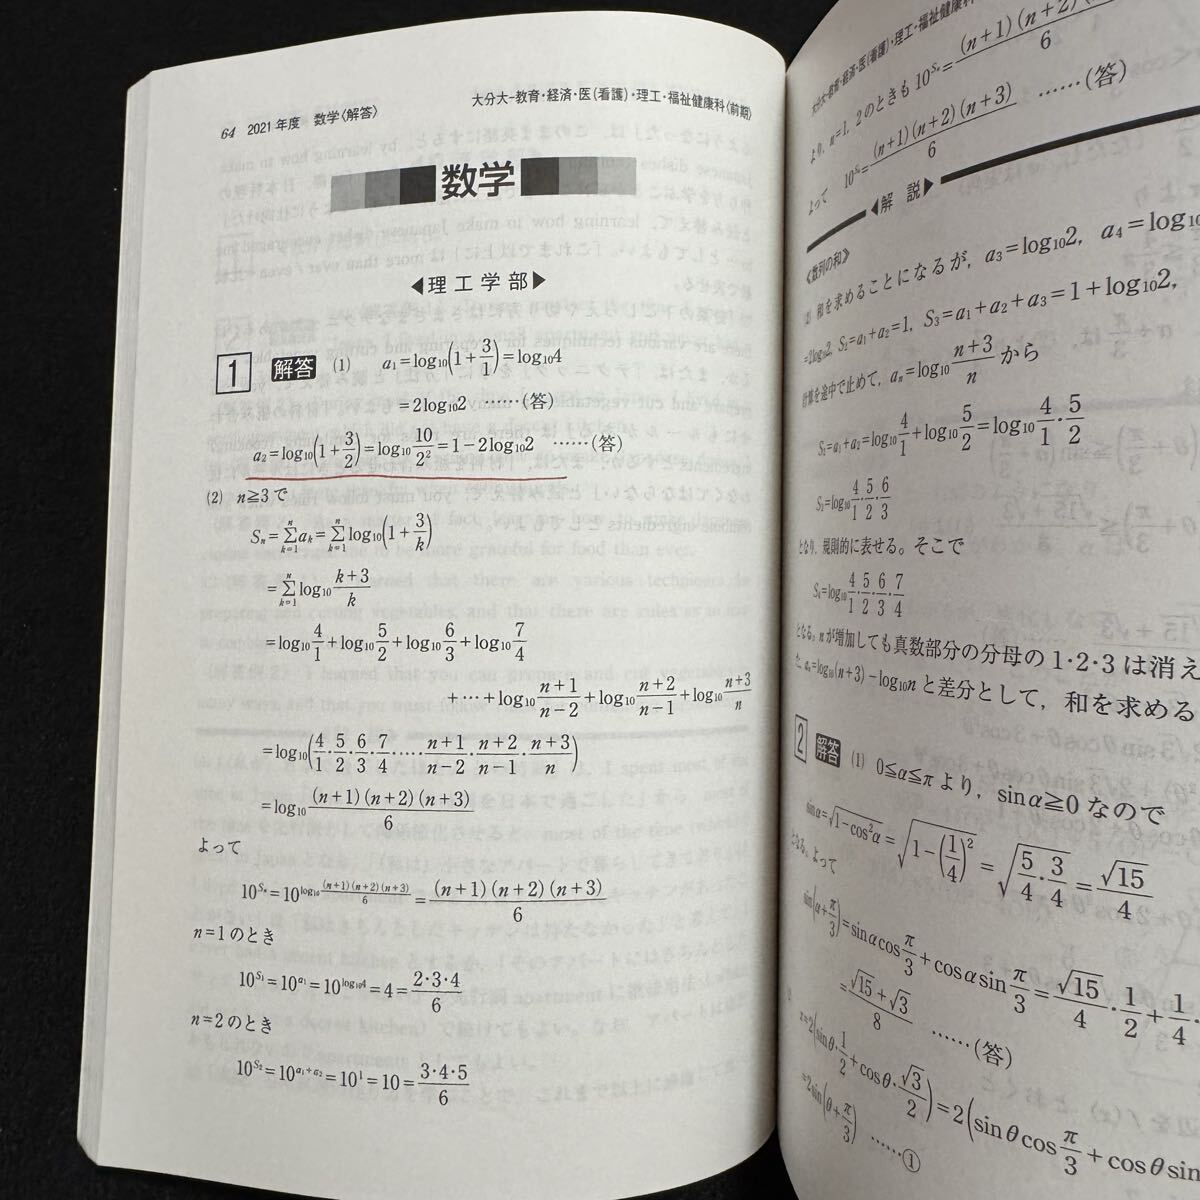 64 2021年度 数学〈解答〉
大分大−教育・経済・医(看護)・理工・福祉健康科〈前期〉
数学
◀理工学部▶
1 解答 (1) a₁=log₁₀(1+3/1)=log₁₀4
=2log₁₀2 ……(答)
a₂=log₁₀(1+3/2)=log₁₀10/2²=1−2log₁₀2 ……(答)
(2) n≧3で
Sₙ=Σ[k=1→n]aₖ=Σ[k=1→n]log₁₀(1+3/k)
=Σ[k=1→n]log₁₀(k+3)/k
=log₁₀4/1+log₁₀5/2+log₁₀6/3+log₁₀7/4
+⋯+log₁₀(n+1)/(n−2)+log₁₀(n+2)/(n−1)+log₁₀(n+3)/n
=log₁₀(4/1・5/2・6/3・7/4・⋯・(n+1)/(n−2)・(n+2)/(n−1)・(n+3)/n)
=log₁₀(n+1)(n+2)(n+3)/6
よって
10^Sₙ=10^log₁₀(n+1)(n+2)(n+3)/6=(n+1)(n+2)(n+3)/6
n=1のとき
10^S₁=10^a₁=10^log₁₀4=4=2・3・4/6
n=2のとき
10^S₂=10^(a₁+a₂)=10¹=10=3・4・5/6
大分大−教育・経済・医(看護)・理工・福祉健康科
より，n=1，2のときも 10^Sₙ=(n+1)(n+2)(n+3)/6
よって 10^Sₙ=(n+1)(n+2)(n+3)/6 ……(答)
◀解 説▶
≪数列の和≫
和を求めることになるが，a₃=log₁₀2，a₄=log₁₀
=2log₁₀2，S₂=a₁+a₂=1，S₃=a₁+a₂+a₃=1+log₁₀2，
計算を途中で止めて，aₙ=log₁₀(n+3)/n から
S₂=a₁+a₂=log₁₀4/1+log₁₀5/2=log₁₀4/1・5/2
S₃=log₁₀4/1・5/2・6/3
となり，規則的に表せる。そこで
S₄=log₁₀4/1・5/2・6/3・7/4
となる。nが増加しても真数部分の分母の1・2・3は消え
た aₙ=log₁₀(n+3)−log₁₀n と差分として，和を求める
2 解答 (1) 0≦α≦π より，sinα≧0 なので
sinα=√(1−cos²α)=√(1−(1/4)²)=√(5・3/4・4)=√15/4
となる。よって
sin(α+π/3)=sinαcosπ/3+cosαsinπ/3=√15/4・1/2+1/4・
=(√15+√3)/8 ……(答)
=2(sinθ・1/2+cosθ・√3/2)=2(sinθcosπ/3+cosθsin
=2sin(θ+π/3) ……①